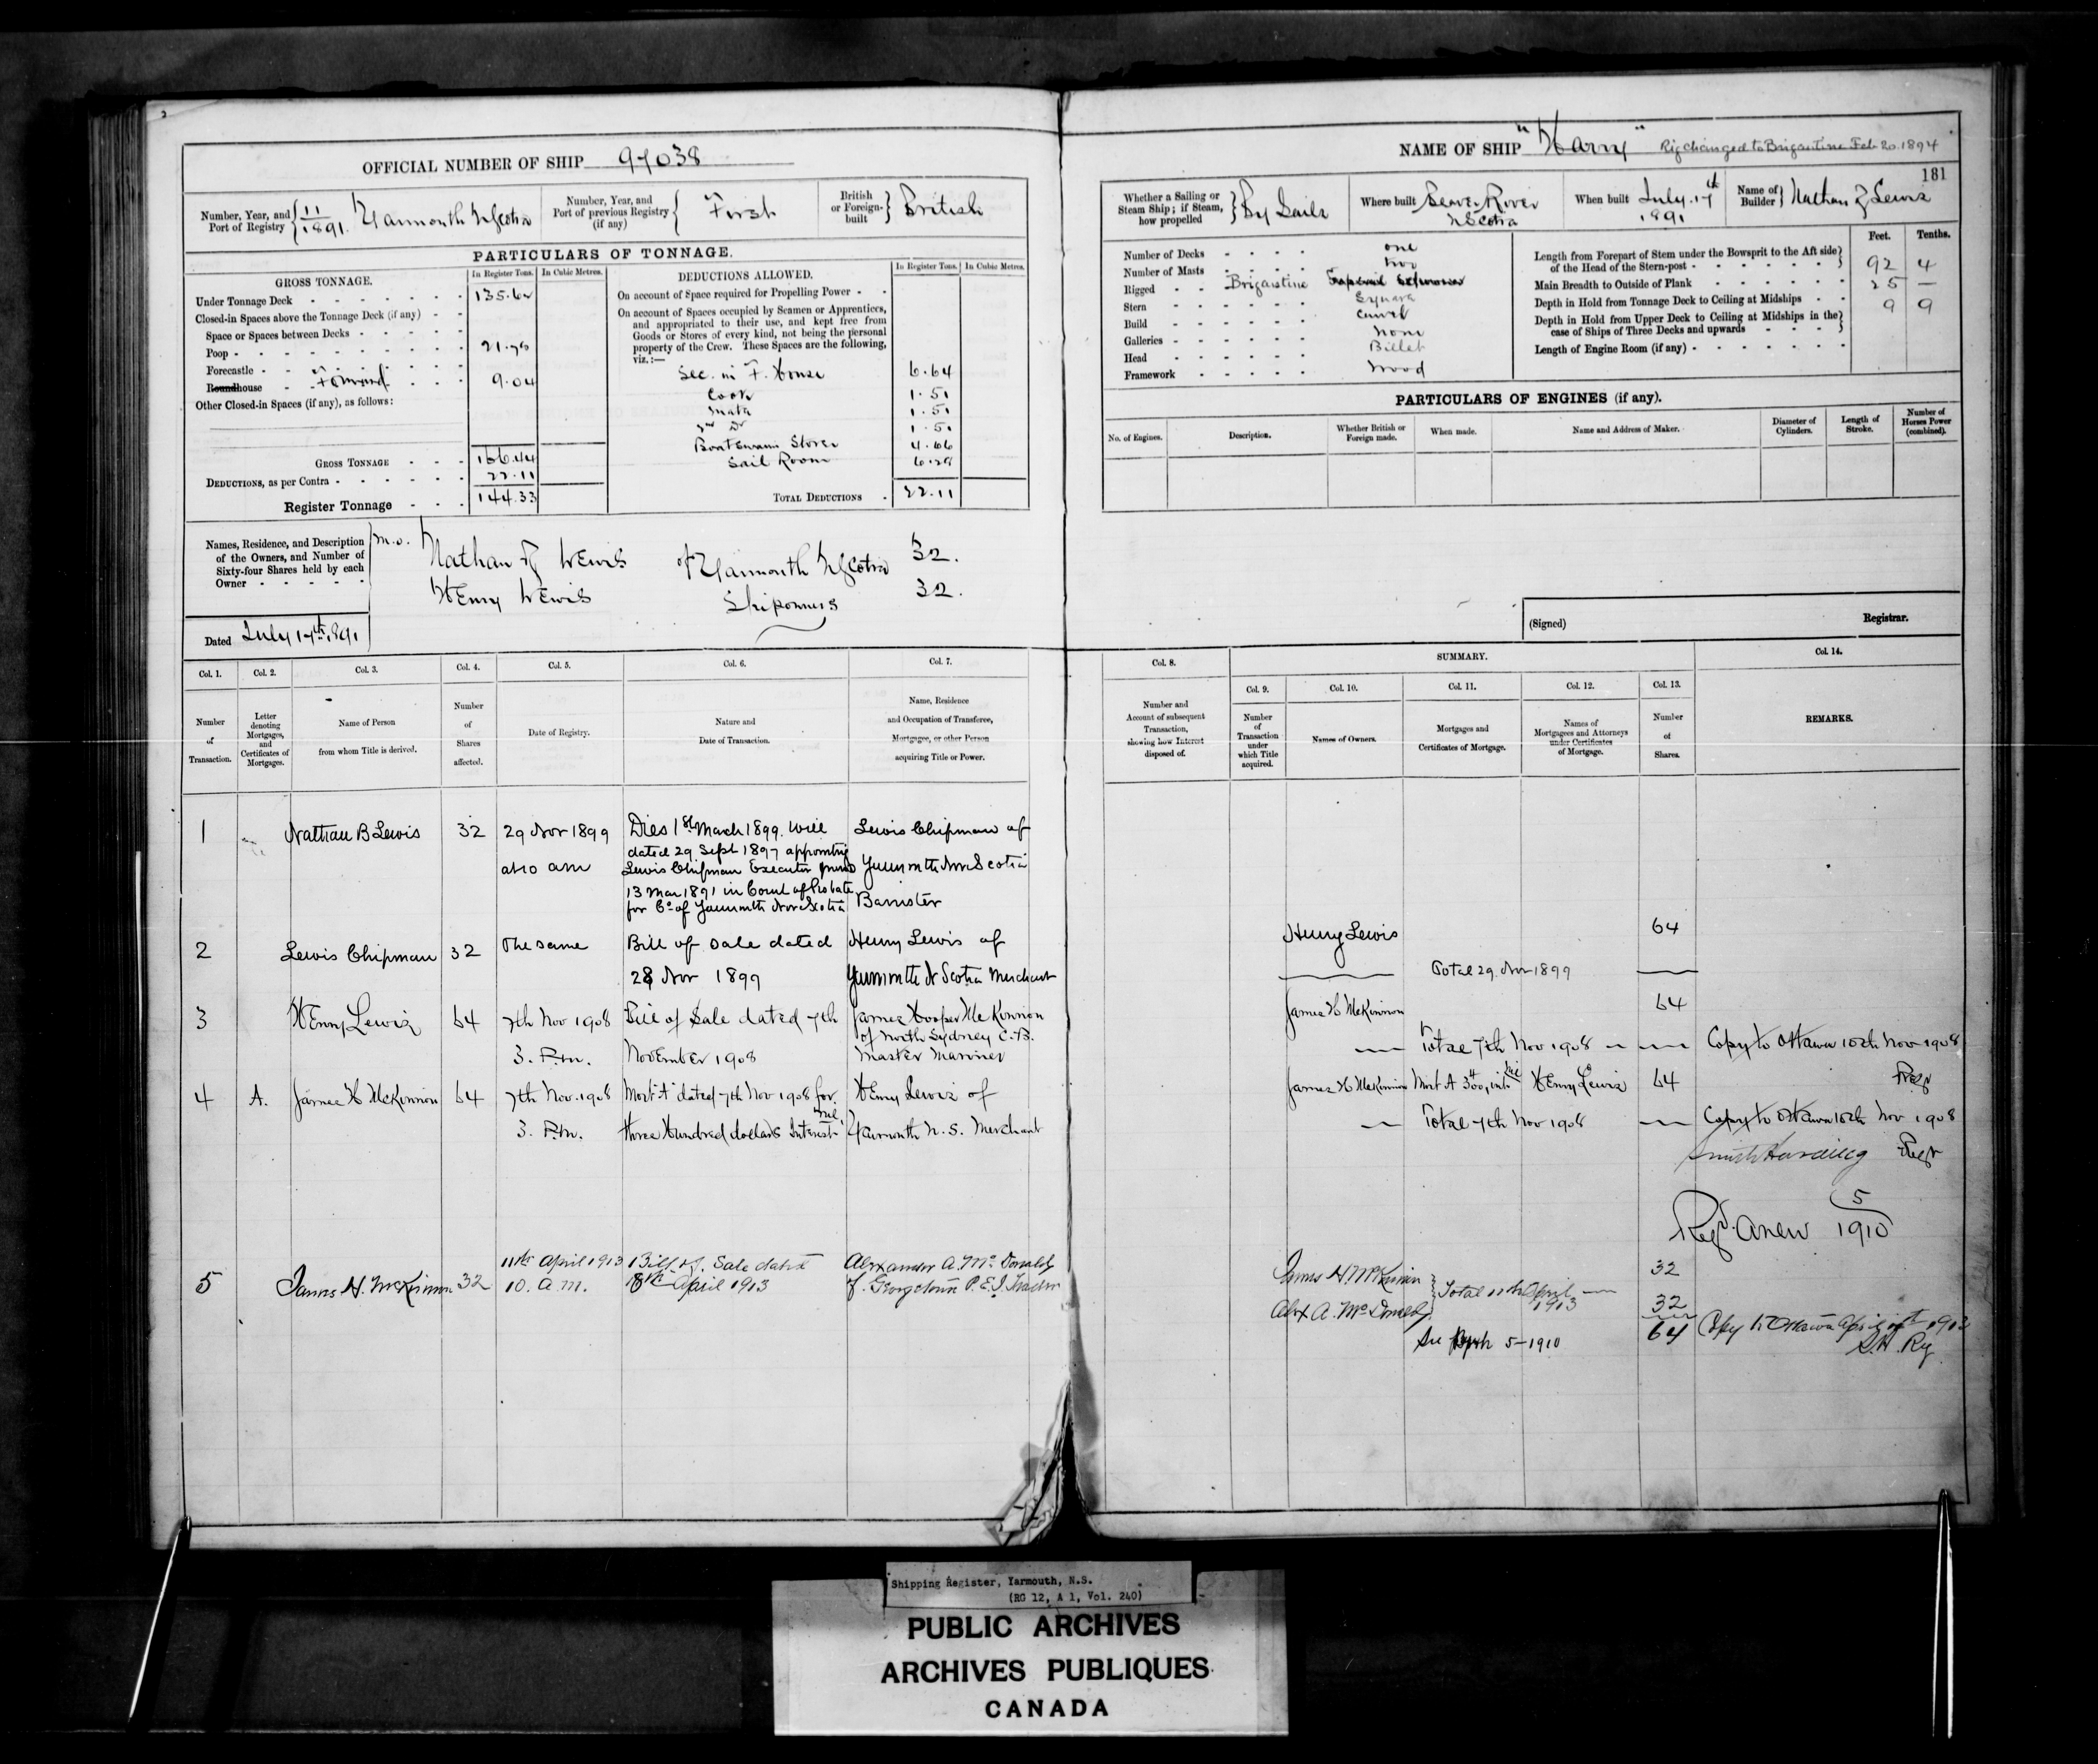 OFFICIAL NUMBER OF SHIP 97038
Number, Year, and Port of Registry 11/1891. Yarmouth N Scotia
Number, Year, and Port of previous Registry (if any) First
British or Foreign-built British
PARTICULARS OF TONNAGE.
GROSS TONNAGE.
In Register Tons. In Cubic Metres.
Under Tonnage Deck 135.62
Closed-in Spaces above the Tonnage Deck (if any)
Space or Spaces between Decks
Poop 21.78
Forecastle
Roundhouse Forward 9.04
Other Closed-in Spaces (if any), as follows:
GROSS TONNAGE 166.44
DEDUCTIONS, as per Contra 22.11
Register Tonnage 144.33
DEDUCTIONS ALLOWED.
In Register Tons. In Cubic Metres.
On account of Space required for Propelling Power
On account of Spaces occupied by Seamen or Apprentices,
and appropriated to their use, and kept free from
Goods or Stores of every kind, not being the personal
property of the Crew. These Spaces are the following,
viz.:—
Sec. in F. House 6.64
Cook 1.51
Mate 1.51
2nd Do 1.51
Boatswains Stores 4.66
Sail Room 6.28
TOTAL DEDUCTIONS 22.11
Names, Residence, and Description
of the Owners, and Number of
Sixty-four Shares held by each
Owner
M.O.
Nathan B Lewis of Yarmouth N Scotia 32.
Henry Lewis Shipowners 32.
Dated July 17th 1891
NAME OF SHIP "Harry" Rig changed to Brigantine Feb 20. 1894
181
Whether a Sailing or Steam Ship; if Steam, how propelled By Sails
Where built Beaver River N Scotia
When built July. 17th 1891
Name of Builder Nathan B Lewis
Number of Decks one
Number of Masts two
Rigged Brigantine
Stern Square
Build Carvel
Galleries None
Head Billet
Framework Wood
Feet. Tenths.
Length from Forepart of Stem under the Bowsprit to the Aft side
of the Head of the Stern-post 92 4
Main Breadth to Outside of Plank 25 —
Depth in Hold from Tonnage Deck to Ceiling at Midships 9 9
Depth in Hold from Upper Deck to Ceiling at Midships in the
case of Ships of Three Decks and upwards
Length of Engine Room (if any)
PARTICULARS OF ENGINES (if any).
No. of Engines. Description. Whether British or Foreign made. When made. Name and Address of Maker. Diameter of Cylinders. Length of Stroke. Number of Horses Power (combined).
(Signed) Registrar.
Col. 1. Col. 2. Col. 3. Col. 4. Col. 5. Col. 6. Col. 7.
Number of Transaction.
Letter denoting Mortgages, and Certificates of Mortgages.
Name of Person from whom Title is derived.
Number of Shares affected.
Date of Registry.
Nature and Date of Transaction.
Name, Residence and Occupation of Transferee, Mortgagee, or other Person acquiring Title or Power.
1 Nathan B Lewis 32 29 Nov 1899 Dies 1st March 1899. Will Lewis Chipman of
dated 29 Sept 1897 appointing
at 10 am Lewis Chipman Executor Yarmouth Nova Scotia
13 Mar 1891 in Court of Probate
for Co of Yarmouth Nova Scotia Barrister
2 Lewis Chipman 32 The same Bill of Sale dated Henry Lewis of
28 Nov 1899 Yarmouth N Scotia Merchant
3 Henry Lewis 64 7th Nov 1908 Bill of Sale dated 7th James Hooper McKinnon
of North Sydney C.B.
3. P.m. November 1908 Master Mariner
4 A. James H McKinnon 64 7th Nov. 1908 Mort "A" dated 7th Nov 1908 for Henry Lewis of
3. P.m. three Hundred dollars Interest nil Yarmouth N.S. Merchant
5 James H. McKinnon 32 11th April 1913 Bill of Sale dated Alexander A. McDonald
10. A.M. 8th April 1913 of Georgetown P.E.I. Trader
Col. 8. SUMMARY. Col. 14.
Col. 9. Col. 10. Col. 11. Col. 12. Col. 13.
Number and Account of subsequent Transaction, showing how Interest disposed of.
Number of Transaction under which Title acquired.
Names of Owners.
Mortgages and Certificates of Mortgage.
Names of Mortgagees and Attorneys under Certificates of Mortgage.
Number of Shares.
REMARKS.
Henry Lewis 64
Total 29. Nov 1899
James H McKinnon 64
Total 7th Nov 1908 Copy to Ottawa 10th Nov 1908
Regr
James H McKinnon Mort A 300, int nil Henry Lewis 64
Total 7th Nov 1908 Copy to Ottawa 10th Nov 1908
Regr
Regd. Anew 5/1910
James H. McKinnon 32
Total 11th April 1913
Alex A. McDonald 32
64 Copy to Ottawa April 1913
See 5-1910
S.H. Rg
Shipping Register, Yarmouth, N.S.
(RG 12, A 1, Vol. 240)
PUBLIC ARCHIVES
ARCHIVES PUBLIQUES
CANADA